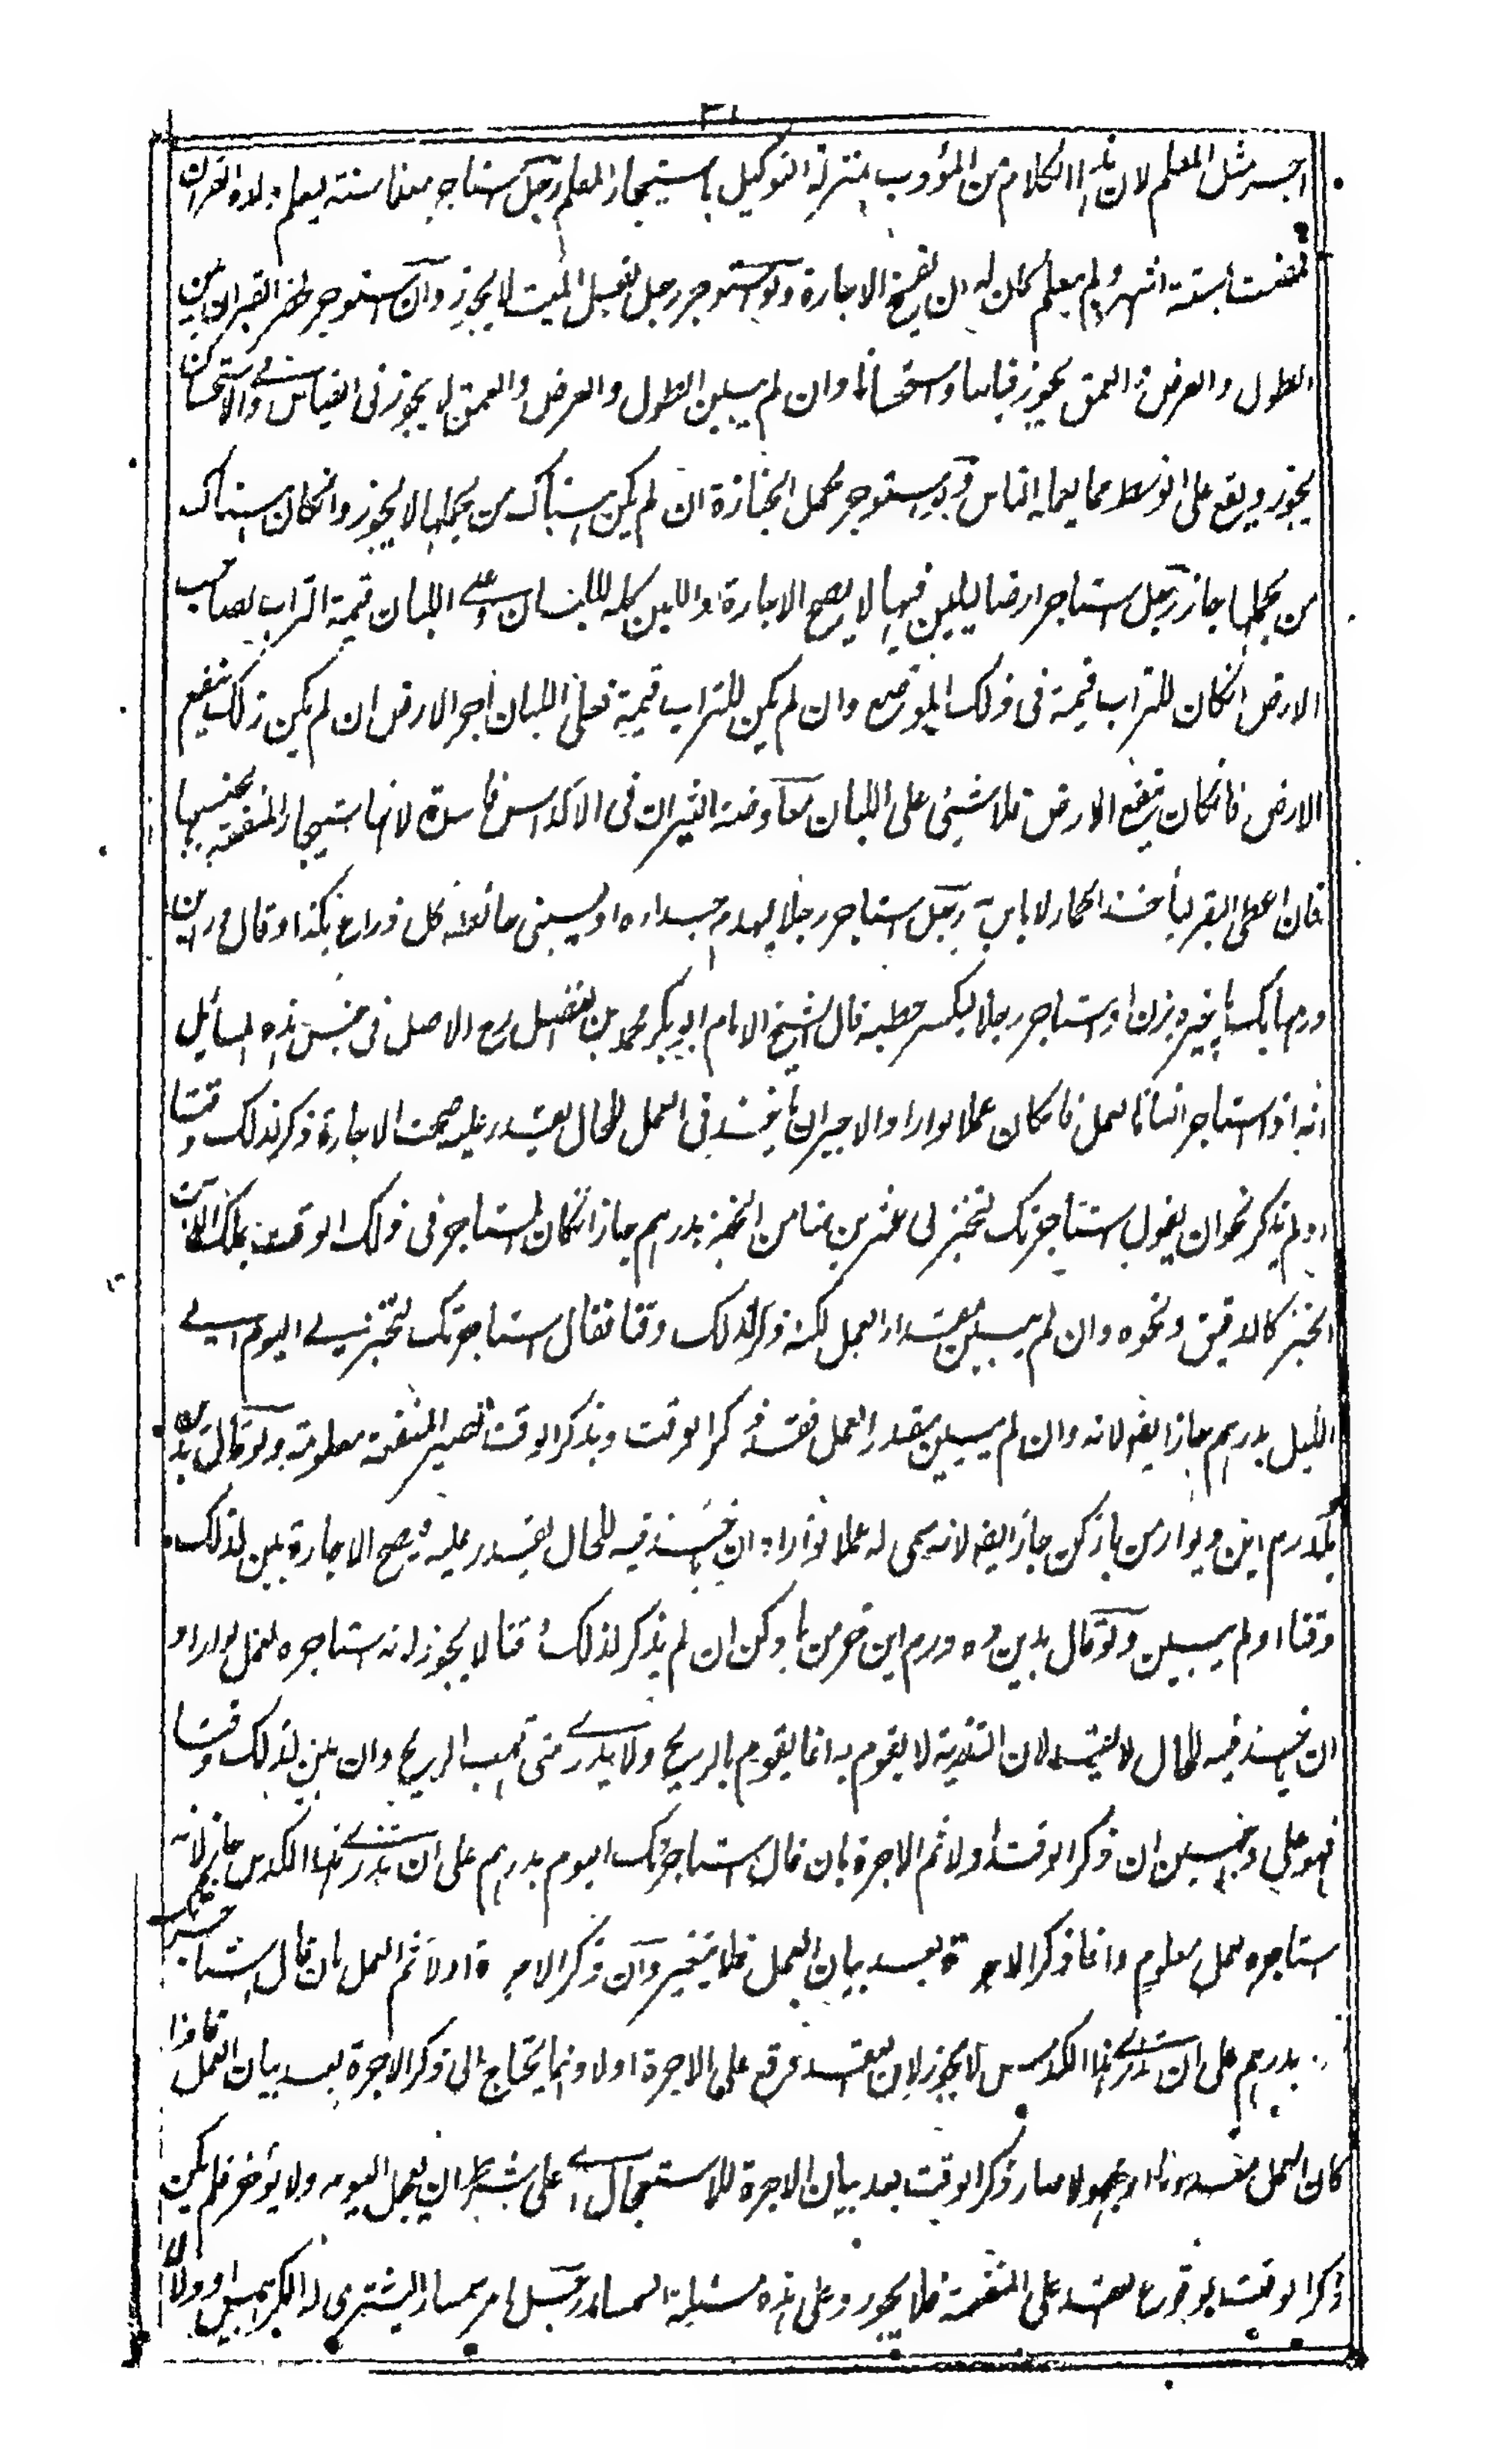 اجر مثل المعلم لان هذا الكلام من المؤدب بمنزلة التوكيل باستيجار المعلم رجل استاجر معلما سنة ليعلم ولده القران
فمضت ستة اشهر ولم يعلم كان له ان يفسخ الاجارة ولو استوجر رجل لغسل الميت لا يجوز وان استوجر لحفر القبر ان بين
الطول والعرض والعمق يجوز قياسا واستحسانا وان لم يبين الطول والعرض والعمق لا يجوز فى القياس وفي الاستحسان
يجوز ويقع على الوسط مما يعمله الناس ولو استوجر لحمل الجنازة ان لم يكن هناك من يحملها لا يجوز وانكان هناك
من يحملها جاز رجل استاجر ارضا ليلبن فيها لا يصح الاجارة واللبن كله للبان وعلى اللبان قيمة التراب لصاحب
الارض انكان للتراب قيمة فى ذلك الموضع وان لم يكن للتراب قيمة فعلى اللبان اجر الارض ان لم يكن ذلك ينفع
الارض فانكان ينفع الارض فلا شئ على اللبان معاوضة الثيران فى الاكداس فاسدة لانها استيجار المنفعة بجنسها
فان اعطى البقر ليأخذ الحمار لا باس به رجل استاجر رجلا ليهدم جداره او ليبنى حائطه كل ذراع بكذا وقال
استاجر رجلا ليكسر حطبه قال الشيخ الامام ابو بكر محمد بن الفضل رح الاصل فى جنس هذه المسائل
انه اذا استاجر انسانا لعمل فانكان عملا لو اراد الاجير ان ياخذ فى العمل للحال يقدر عليه صحت الاجارة ذكر لذلك وقتا
او لم يذكر نحو ان يقول استاجرتك لتخبز لى عشرين منا من الخبز بدرهم جاز انكان المستاجر فى ذلك الوقت يملك الات
الخبز كالدقيق ونحوه وان لم يبين مقدار العمل لكنه ذكر لذلك وقتا فقال استاجرتك لتخبز لي اليوم الى
الليل بدرهم جاز ايضا لانه وان لم يبين مقدار العمل فقد ذكر الوقت وبذكر الوقت تصير المنفعة معلومة ولو قال بدين
يكدرم اين ديوار من باز كن جاز ايضا لانه سمى له عملا لو اراد ان ياخذ فيه للحال يقدر عليه فيصح الاجارة بين لذلك
وقتا او لم يبين ولو قال بدين ده درم اين خرمن باد كن ان لم يذكر لذلك وقتا لا يجوز لانه استاجره لعمل لو اراد
ان ياخذ فيه للحال لا يقدر لان التذرية لا يقوم به انما يقوم بالريح ولا يدرى متى تهب الريح وان بين لذلك وقتا
فهو على وجهين ان ذكر الوقت اولا ثم الاجرة بان قال استاجرتك اليوم بدرهم على ان تذرى هذا الكدس جاز لانه
استاجره لعمل معلوم وانما ذكر الاجرة بعد بيان العمل فلا يتغير وان ذكر الاجرة اولا ثم العمل بان قال استاجرتك
بدرهم على ان تذرى هذا الكدس لا يجوز لان العقد وقع على الاجرة اولا وانما يحتاج الى ذكر الاجرة بعد بيان العمل فاذا
كان العمل معدوما او مجهولا صار ذكر الوقت بعد بيان الاجرة للاستعجال اى على شرط ان يعمل اليوم ولا يؤخر فلم يكن
ذكر الوقت لوقوع العقد على المنفعة فلا يجوز وعلى هذه مسئلة السمسار رجل امر سمسارا ليشترى له الكرابيس